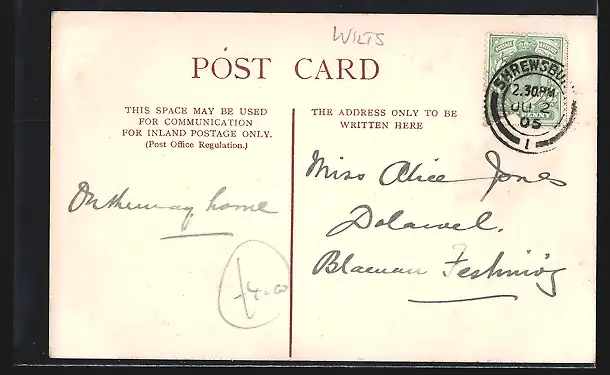 WILTS
POST CARD
THIS SPACE MAY BE USED
FOR COMMUNICATION
FOR INLAND POSTAGE ONLY.
(Post Office Regulation.)
THE ADDRESS ONLY TO BE
WRITTEN HERE
SHREWSBU
2.30PM
JU 2
05
1
PENNY
On the way home
Miss Alice Jones
Dolawel.
Blaenau Festiniog
£4.00